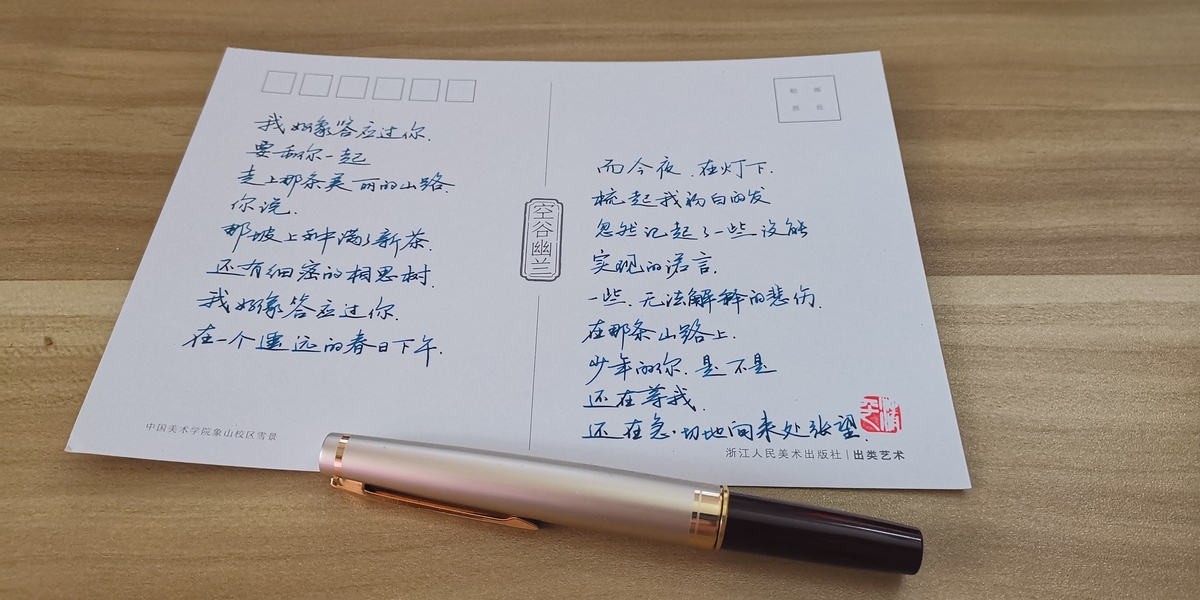 我好象答应过你.
要和你一起
走上那条美丽的山路.
你说.
那坡上种满了新茶.
还有细密的相思树.
我好象答应过你.
在一个遥远的春日下午.
中国美术学院象山校区雪景
空谷幽兰
贴邮
票处
而今夜.在灯下.
梳起我初白的发
忽然记起了一些没能
实现的诺言.
一些.无法解释的悲伤.
在那条山路上.
少年的你.是不是
还在等我.
还在急切地向来处张望.
浙江人民美术出版社|出类艺术